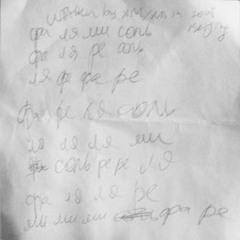 фа ля ми соль
фа ля ре соль
ля ре фа ре
фа ре ля соль
ля ля ля ми
соль ре ре ля
фа ля ля ре
ми ми ми фа ре